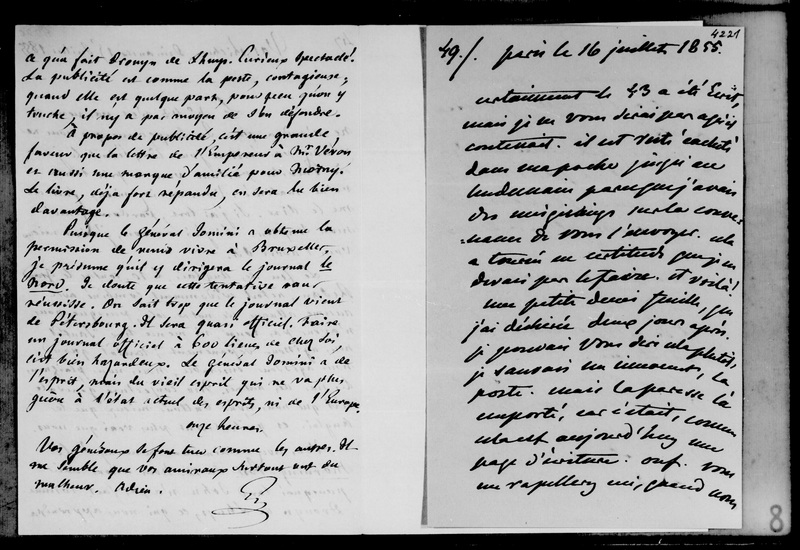 ce qu'a fait Drouyn de Lhuys. Curieux spectacle.
La publicité est comme la peste, contagieuse;
quand elle est quelque part, pour peu qu'on y
touche, il n'y a pas moyen de s'en défendre.
A propos de publicité, c'est une grande
faveur que la lettre de l'Empereur à Mr. Véron
et aussi une marque d'amitié pour Morny.
Le livre, déjà fort répandu, en sera bien
davantage.
Puisque le Général Jomini a obtenu la
permission de venir vivre à Bruxelles,
je présume qu'il y dirigera le journal le
Nord. Je doute que cette tentative
réussisse. On sait trop que le journal vient
de Pétersbourg. Il sera quasi officiel. Faire
un journal officiel à 600 lieues de chez soi,
c'est bien hazardeux. Le Général Jomini a de
l'esprit, mais du vieil esprit qui ne va plus
guère à l'état actuel des esprits, ni de l'Europe.
onze heures.
Vos généraux se font tuer comme les autres. Il
me semble que vos amiraux surtout ont du
malheur. Adieu.
G
4221
49./. paris le 16 juillet 1855.
certainement le 43 a été écrit,
mais je ne vous dirai pas ce qu'il
contenait. il est resté cacheté
dans ma poche jusqu'au
lendemain parce que j'avais
des misgivings sur la conve-
-nance de vous l'envoyer. cela
a tourné en certitude que je ne
devais pas le faire. et voilà!
une petite demi feuille, que
j'ai déchirée deux jours après.
je pouvais vous dire cela plutôt,
je sauvais un innocent, la
poste. mais la paresse l'a
emporté, car c'était, comme
cela est aujourd'hui une
page d'écriture. ouf. vous
me rapellerez ceci, quand nous
8